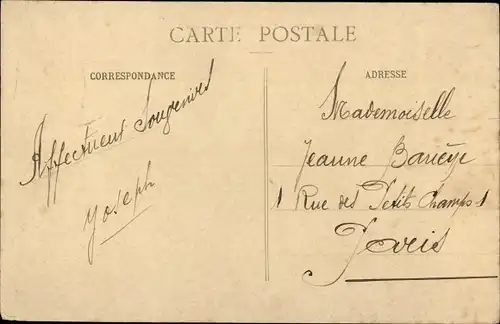 CARTE POSTALE
CORRESPONDANCE
Affectueux Souvenirs
Joseph
ADRESSE
Mademoiselle
Jeanne
1 Rue des Petits Champs 1
Paris